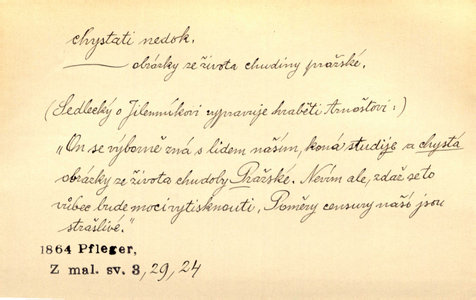 chystati nedok.
obrázky ze života chudiny pražské.
(Sedlecký o Jilemníkovi vypravuje hraběti Arnoštovi:)
„On se výborně zná s lidem naším, koná studije a chystá
obrázky ze života chudoby Pražské. Nevím ale, zdaž se to
vůbec bude moci vytisknouti. Poměry censury naší jsou
strašlivé."
1864 Pfleger,
Z mal. sv. 3, 29, 24